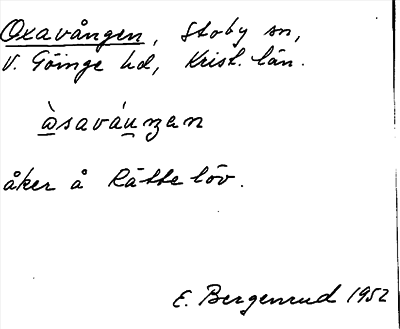 Oxavången, Stoby sn,
V. Göinge hd, Krist. län.
åker å Rättelöv.
E. Bergenrud 1952